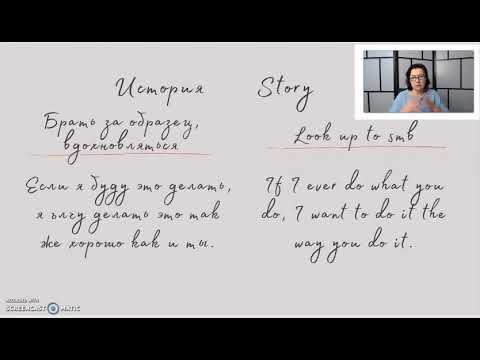 История
Брать за образец,
вдохновляться
Если я буду это делать,
я делать это так
же хорошо как и ты.
Story
Look up to smb
If I ever do what you
do, I want to do it the
way you do it.
RECORDED WITH
SCREENCAST-O-MATIC